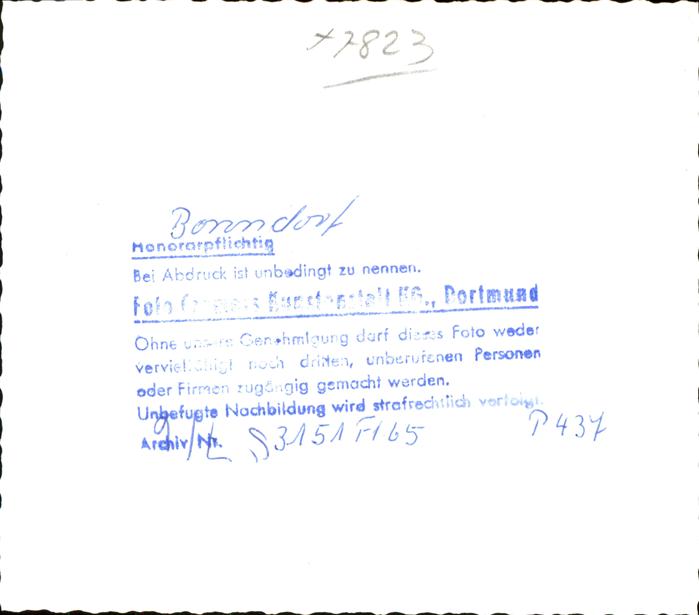 +7823
Bonndorf
Honorarpflichtig
Bei Abdruck ist unbedingt zu nennen.
Foto Cramers Kunstanstalt KG., Dortmund
Ohne unsere Genehmigung darf dieses Foto weder
vervielfältigt noch dritten, unberufenen Personen
oder Firmen zugängig gemacht werden.
Unbefugte Nachbildung wird strafrechtlich verfolgt.
Archiv Nr. 3151 F/65 P 437